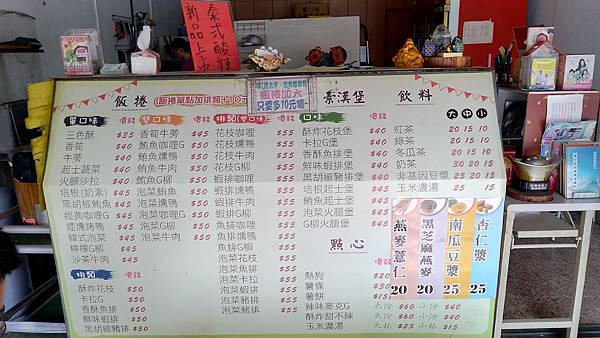 泰式酸辣
新品上市
飯捲
(飯捲單點加排類+10元)
飯捲加大
只要多10元喔
素漢堡
飲料
大 中 小
單口味
三色酥 $35
香筍 $40
牛蒡 $40
起士蔬菜 $40
火腿沙拉 $40
培根(奶素) $45
黑胡椒鮪魚 $45
經典咖哩G $45
煙燻烤鴨 $45
韓式泡菜 $45
檸檬G柳 $45
沙茶牛肉 $45
雙口味
香筍牛蒡 $45
鮪魚咖哩G $50
鮪魚燻鴨 $50
鮪魚牛肉 $50
鮪魚G柳 $50
泡菜鮪魚 $50
泡菜燻鴨 $50
泡菜咖哩G $50
泡菜G柳 $50
泡菜牛肉 $50
排類(雙口味)
花枝咖哩 $55
花枝燻鴨 $55
花枝牛肉 $55
花枝G柳 $55
蝦排燻鴨 $55
蝦排牛肉 $55
蝦排G柳 $55
魚排咖哩 $55
魚排燻鴨 $55
魚排G柳 $55
泡菜花枝 $55
泡菜魚排 $55
泡菜卡拉 $55
泡菜蝦排 $55
泡菜豬排 $55
排類
酥炸花枝 $50
卡拉G $50
香酥魚排 $50
鮮味蝦排 $50
黑胡椒豬排 $50
口味
酥炸花枝堡 $40
卡拉G堡 $40
香酥魚排堡 $40
鮮味蝦排堡 $40
黑胡椒豬排堡 $40
培根起士堡 $45
鮪魚起士堡 $45
泡菜火腿堡 $45
G柳火腿堡 $45
點心
熱狗 $20
薯條 $30
薯餅 $15
辣味麥克G 大份 $60 小份 $40
酥炸甜不辣 大份 $60 小份 $40
玉米濃湯 大杯 $25 小杯 $15
紅茶 20 15 10
綠茶 20 15 10
冬瓜茶 20 15 10
奶茶 30 20 15
非基因豆漿 25 20 15
玉米濃湯 25 15
燕麥薏仁 20
黑芝麻燕麥 20
南瓜豆漿 25
杏仁漿 25